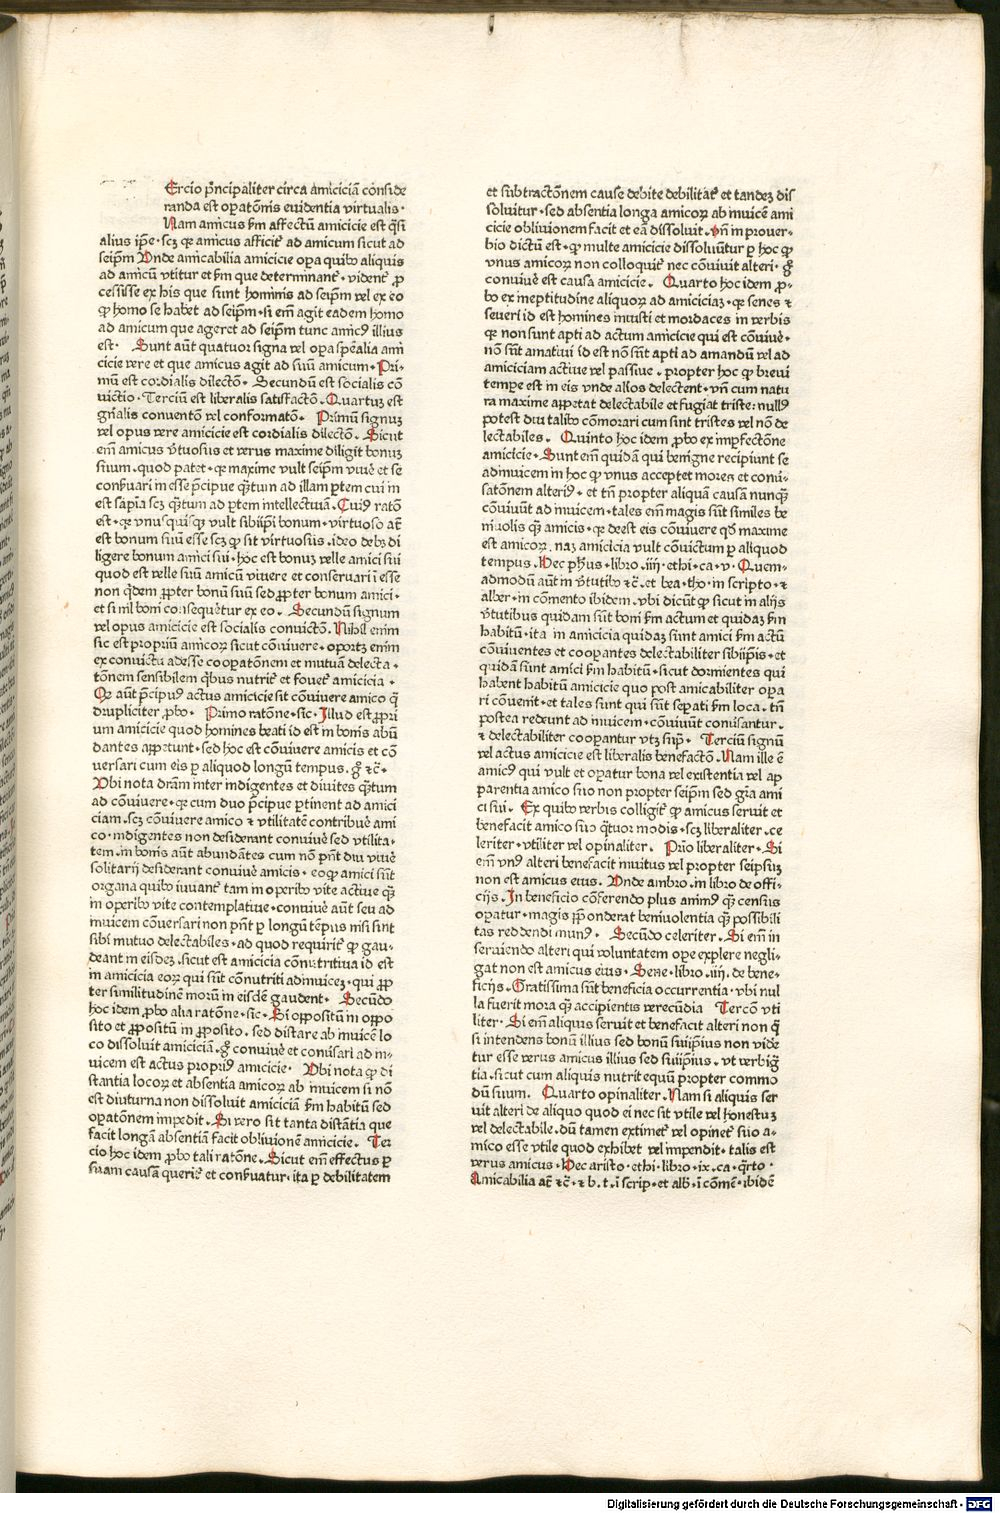 Ercio pͥncipaliter circa amiciciā conside
randa est oꝑatōnis euidentia virtualis·
Nam amicus ẜm affectū amicicie est q̄si
alius ip̄e· scꝫ qꝛ amicus afficit᷑ ad amicum sicut ad
seip̄m Vnde amicabilia amicicie oꝑa quibꝰ aliquis
ad amicū vtitur et ẜm que determinant᷑· vident᷑ ꝓ
cessisse ex his que sunt hominis ad seip̄m vel ex eo
ꝙ homo se habet ad seip̄m· si em̄ agit eadem homo
ad amicum que ageret ad seip̄m tunc amicꝰ illius
est· Sunt aūt quatuor signa vel oꝑa spēalia ami
cicie vere et que amicus agit ad suū amicum· Pri-
mū est cordialis dilectō· Secundū est socialis cō
victio· Terciū est liberalis satisfactō· Quartuꝫ est
gn̄ialis conuentō vel conformatō· Primū signuꝫ
vel opus vere amicicie est cordialis dilectō· Sicut
em̄ amicus v̓tuosus et verus maxime diligit bonuꝫ
suum· quod patet· qꝛ maxime vult seip̄m viuē et se
conẜuari in esse p̄cipue q̄ꝫtum ad illam ꝑtem cui in
est sapīa scꝫ q̄ꝫtum ad ꝑtem intellectiuā· Cuiꝰ ratō
est· qꝛ vnusquisqꝫ vult sibiip̄i bonum· virtuoso aūt
est bonum suū esse scꝫ ꝙ sit virtuosus· ideo debꝫ di
ligere bonum amici sui· hoc est bonuꝫ velle amici sui
quod est velle suū amicū viuere et conseruari ī esse
non q̄dem ꝓpter bonū suū sed ꝓpter bonum amici·
et si nil boni consequet᷑ur ex eo· Secundū signum
vel opus amicicie est socialis convictō· Nihil enim
sic est propriū amicoꝝ sicut cōuiuere· oportꝫ enim
ex convictu adesse cooꝑatōnem et mutuā delecta·
tōnem sensibilem q̄bus nutrit᷑ et fouet᷑ amicicia·
Qꝛ aūt p̄cipuꝰ actus amicicie sit cōuiuere amico q̄
drupliciter ꝓbo· Primo ratōne· sic· Illud est ꝓpri
um amicicie quod homines beati id est in bonis abū
dantes apꝑtunt· sed hoc est cōuiuere amicis et cō
versari cum eis ꝑ aliquod longū tempus· g̊ ⁊c̄·
Vbi nota dr̄am inter indigentes et diuites q̄ꝫtum
ad cōuiuere· qꝛ cum duo p̄cipue ꝑtinent ad amici
ciam· scꝫ cōuiuere amico ⁊ vtilitatē contribuē ami
co· indigentes non desiderant conviuē sed vtilita-
tem· in bonis aūt abundātes cum nō pn̄t diu viuē
solitarij desiderant conviuē amicis· eo ꝙ amici sūt
organa quibꝰ iuuant᷑ tam in operibꝰ vite actiue q̄ꝫ
in operibꝰ vite contemplatiue· conviuē aūt seu ad
inuicem cōuersari non pn̄t ꝑ longū tēpus nisi sint
sibi mutuo delectabiles· ad quod requirit᷑ ꝙ gau-
deant in eisdeꝫ· sicut est amicicia cōnutritiua id est
in amicicia eoꝝ qui sūt cōnutriti adinuiceꝫ· qui ꝓp
ter similitudinē morū in eisdē gaudent· Secūdo
hoc idem ꝓbo alia ratōne· sic· Si oppositū in oppo
sito et ꝓpositū in ꝓposito· sed distare ab inuicē lo
co dissoluit amiciciā· g̊ conviuē et conu̓sari ad in-
uicem est actus propriꝰ amicicie· Vbi nota ꝙ di
stantia locoꝝ et absentia amicoꝝ ab inuicem si nō
est diuturna non dissoluit amiciciā ẜm habitū sed
oꝑatōnem impedit· Si vero sit tanta distātia que
facit longā absentiā facit obliuionē amicicie· Ter
cio hoc idem ꝓbo tali ratōne· Sicut em̄ effectus ꝑ
suam causā querit᷑ et conẜuatur· ita ꝑ debilitatem
et subtractōnem cause debite debilitat᷑ et tandeꝫ dis
soluitur· sed absentia longa amicoꝝ ab inuicē ami
cicie obliuionem facit et eā dissoluit· vn̄ in prouer-
bio dictū est· ꝙ multe amicicie dissoluūtur ꝑ hoc ꝙ
vnus amicoꝝ non colloquit᷑ nec cōuiuit alteri· g̊
conviuē est causa amicicie· Quarto hoc idem ꝓ-
bo ex ineptitudine aliquoꝝ ad amiciciaꝫ· qꝛ senes ⁊
seueri id est homines iniusti et mordaces in verbis
qꝛ non sunt apti ad actum amicicie qui est cōuiuē·
nō sūt amatiui id est nō sūt apti ad amandū vel ad
amiciciam actiue vel passiue· propter hoc ꝙ breui
tempe est in eis vnde alios delectent· vn̄ cum natu
ra maxime apꝑtat delectabile et fugiat triste· nullꝰ
potest diu talibꝰ cōmorari cum sunt tristes vel nō de
lectabiles· Quinto hoc idem ꝓbo ex imꝑfectōne
amicicie· Sunt em̄ quidā qui benigne recipiunt se
adinuicem in hoc ꝙ vnus acceptet mores et conu̓-
satōnem alteriꝰ· et tn̄ propter aliquā causā nunqꝫ̄
cōuiuūt ad inuicem· tales em̄ magis sūt similes be
niuolis q̄ꝫ amicis· qꝛ deest eis cōuiuere qd̓ maxime
est amicoꝝ· naꝫ amicicia vult cōuictum ꝑ aliquod
tempus· Hec ph̓us· libro· iiij· ethi· ca· v· Quem-
admodū aūt in v̓tutibꝰ ⁊c̄· et bea· tho· in scripto· ⁊
alber· in cōmento ibidem· vbi dicūt ꝙ sicut in alijs
v̓tutibus quidam sūt boni ẜm actum et quidaꝫ ẜm
habitū· ita in amicicia quidaꝫ sunt amici ẜm actū
cōuiuentes et cooꝑantes delectabiliter sibiip̄is· et
quidā sunt amici ẜm habitū· sicut dormientes qui
habent habitū amicicie quo post amicabiliter oꝑa
ri cōuenit· et tales sunt qui sūt seꝑati ẜm loca· tn̄
postea redeunt ad inuicem· cōuiuūt conu̓santur·
⁊ delectabiliter cooꝑantur vtꝫ sup̄· Terciū signū
vel actus amicicie est liberalis benefactō· Nam ille ē
amicꝰ qui vult et oꝑatur bona vel existentia vel ap
parentia amico suo non propter seip̄m sed gr̄a ami
ci sui· Ex quibꝰ verbis colligit᷑ ꝙ amicus seruit et
benefacit amico suo q̄tuor modis· scꝫ liberaliter· ce
leriter· vtiliter vel opinaliter· Prīo liberaliter· Si
em̄ vnꝰ alteri benefacit inuitus vel propter seipsuꝫ
non est amicus eius· Vnde ambro· in libro de offi-
cijs· In beneficio cōferendo plus animꝰ q̄ꝫ census
oꝑatur· magis ꝓpōnderat beniuolentia q̄ꝫ possibili
tas reddendi munꝰ· Secūdo celeriter· Si em̄ in
seruiendo alteri qui voluntatem ope explere negli-
gat non est amicus eius· Sene· libro· iiij· de bene-
ficijs· Gratissima sūt beneficia occurrentia· vbi nul
la fuerit mora q̄ꝫ accipientis verecūdia Tercō vti
liter· Si em̄ aliquis seruit et benefacit alteri non q̄
si intendens bonū illius sed bonū suiip̄ius non vide
tur esse verus amicus illius sed suiip̄ius· vt verbig̓
tia· sicut cum aliquis nutrit equū propter commo
dū suum· Quarto opinaliter· Nam si aliquis ser
uit alteri de aliquo quod ei nec sit vtile vel honestuꝫ
vel delectabile· dū tamen extimet᷑ vel opinet᷑ suo a-
mico esse vtile quod exhibet vel impendit· talis est
verus amicus· Hec aristo· ethi· libro· ix· ca· q̄rto·
Amicabilia aūt ⁊c̄· ⁊ b· t· ī scrip· et alb· ī cōmē· ibidē
Digitalisierung gefördert durch die Deutsche Forschungsgemeinschaft - DFG